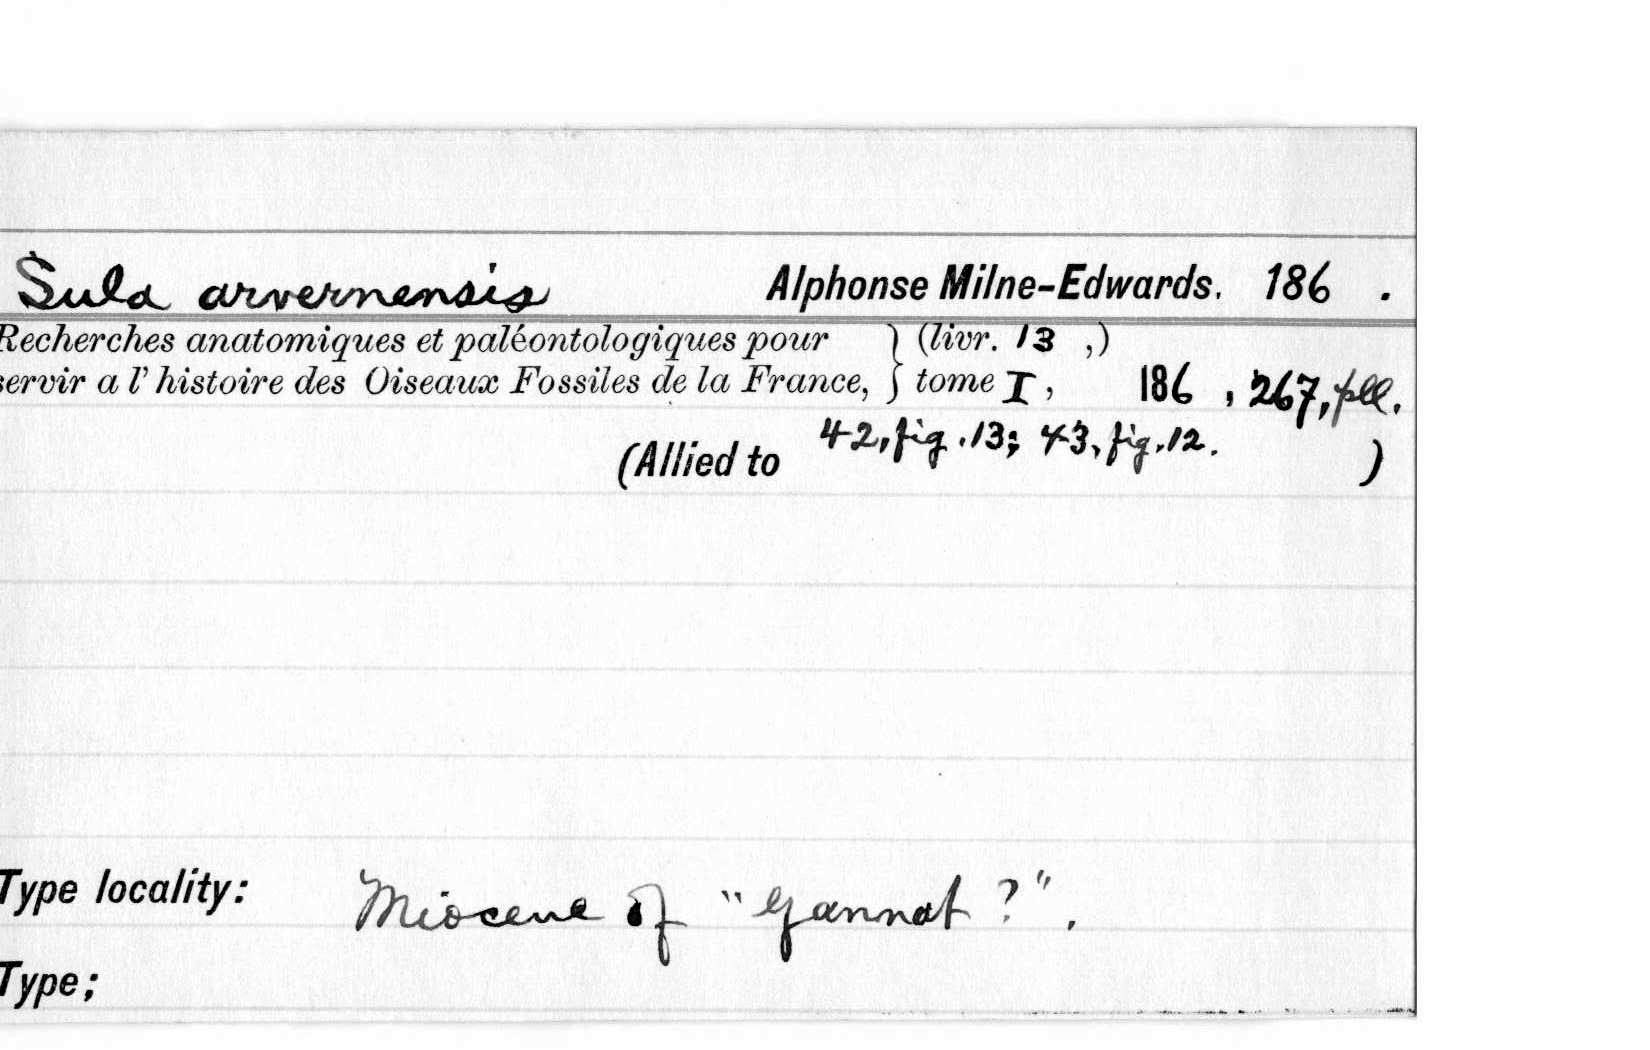 Sula arvernensis Alphonse Milne-Edwards. 186 .
Recherches anatomiques et paléontologiques pour } (livr. 13 ,)
servir a l' histoire des Oiseaux Fossiles de la France, } tome I, 186 , 267, pll.
42, fig. 13; 43, fig. 12.
(Allied to )
Type locality: Miocene of "Gannat ?".
Type;